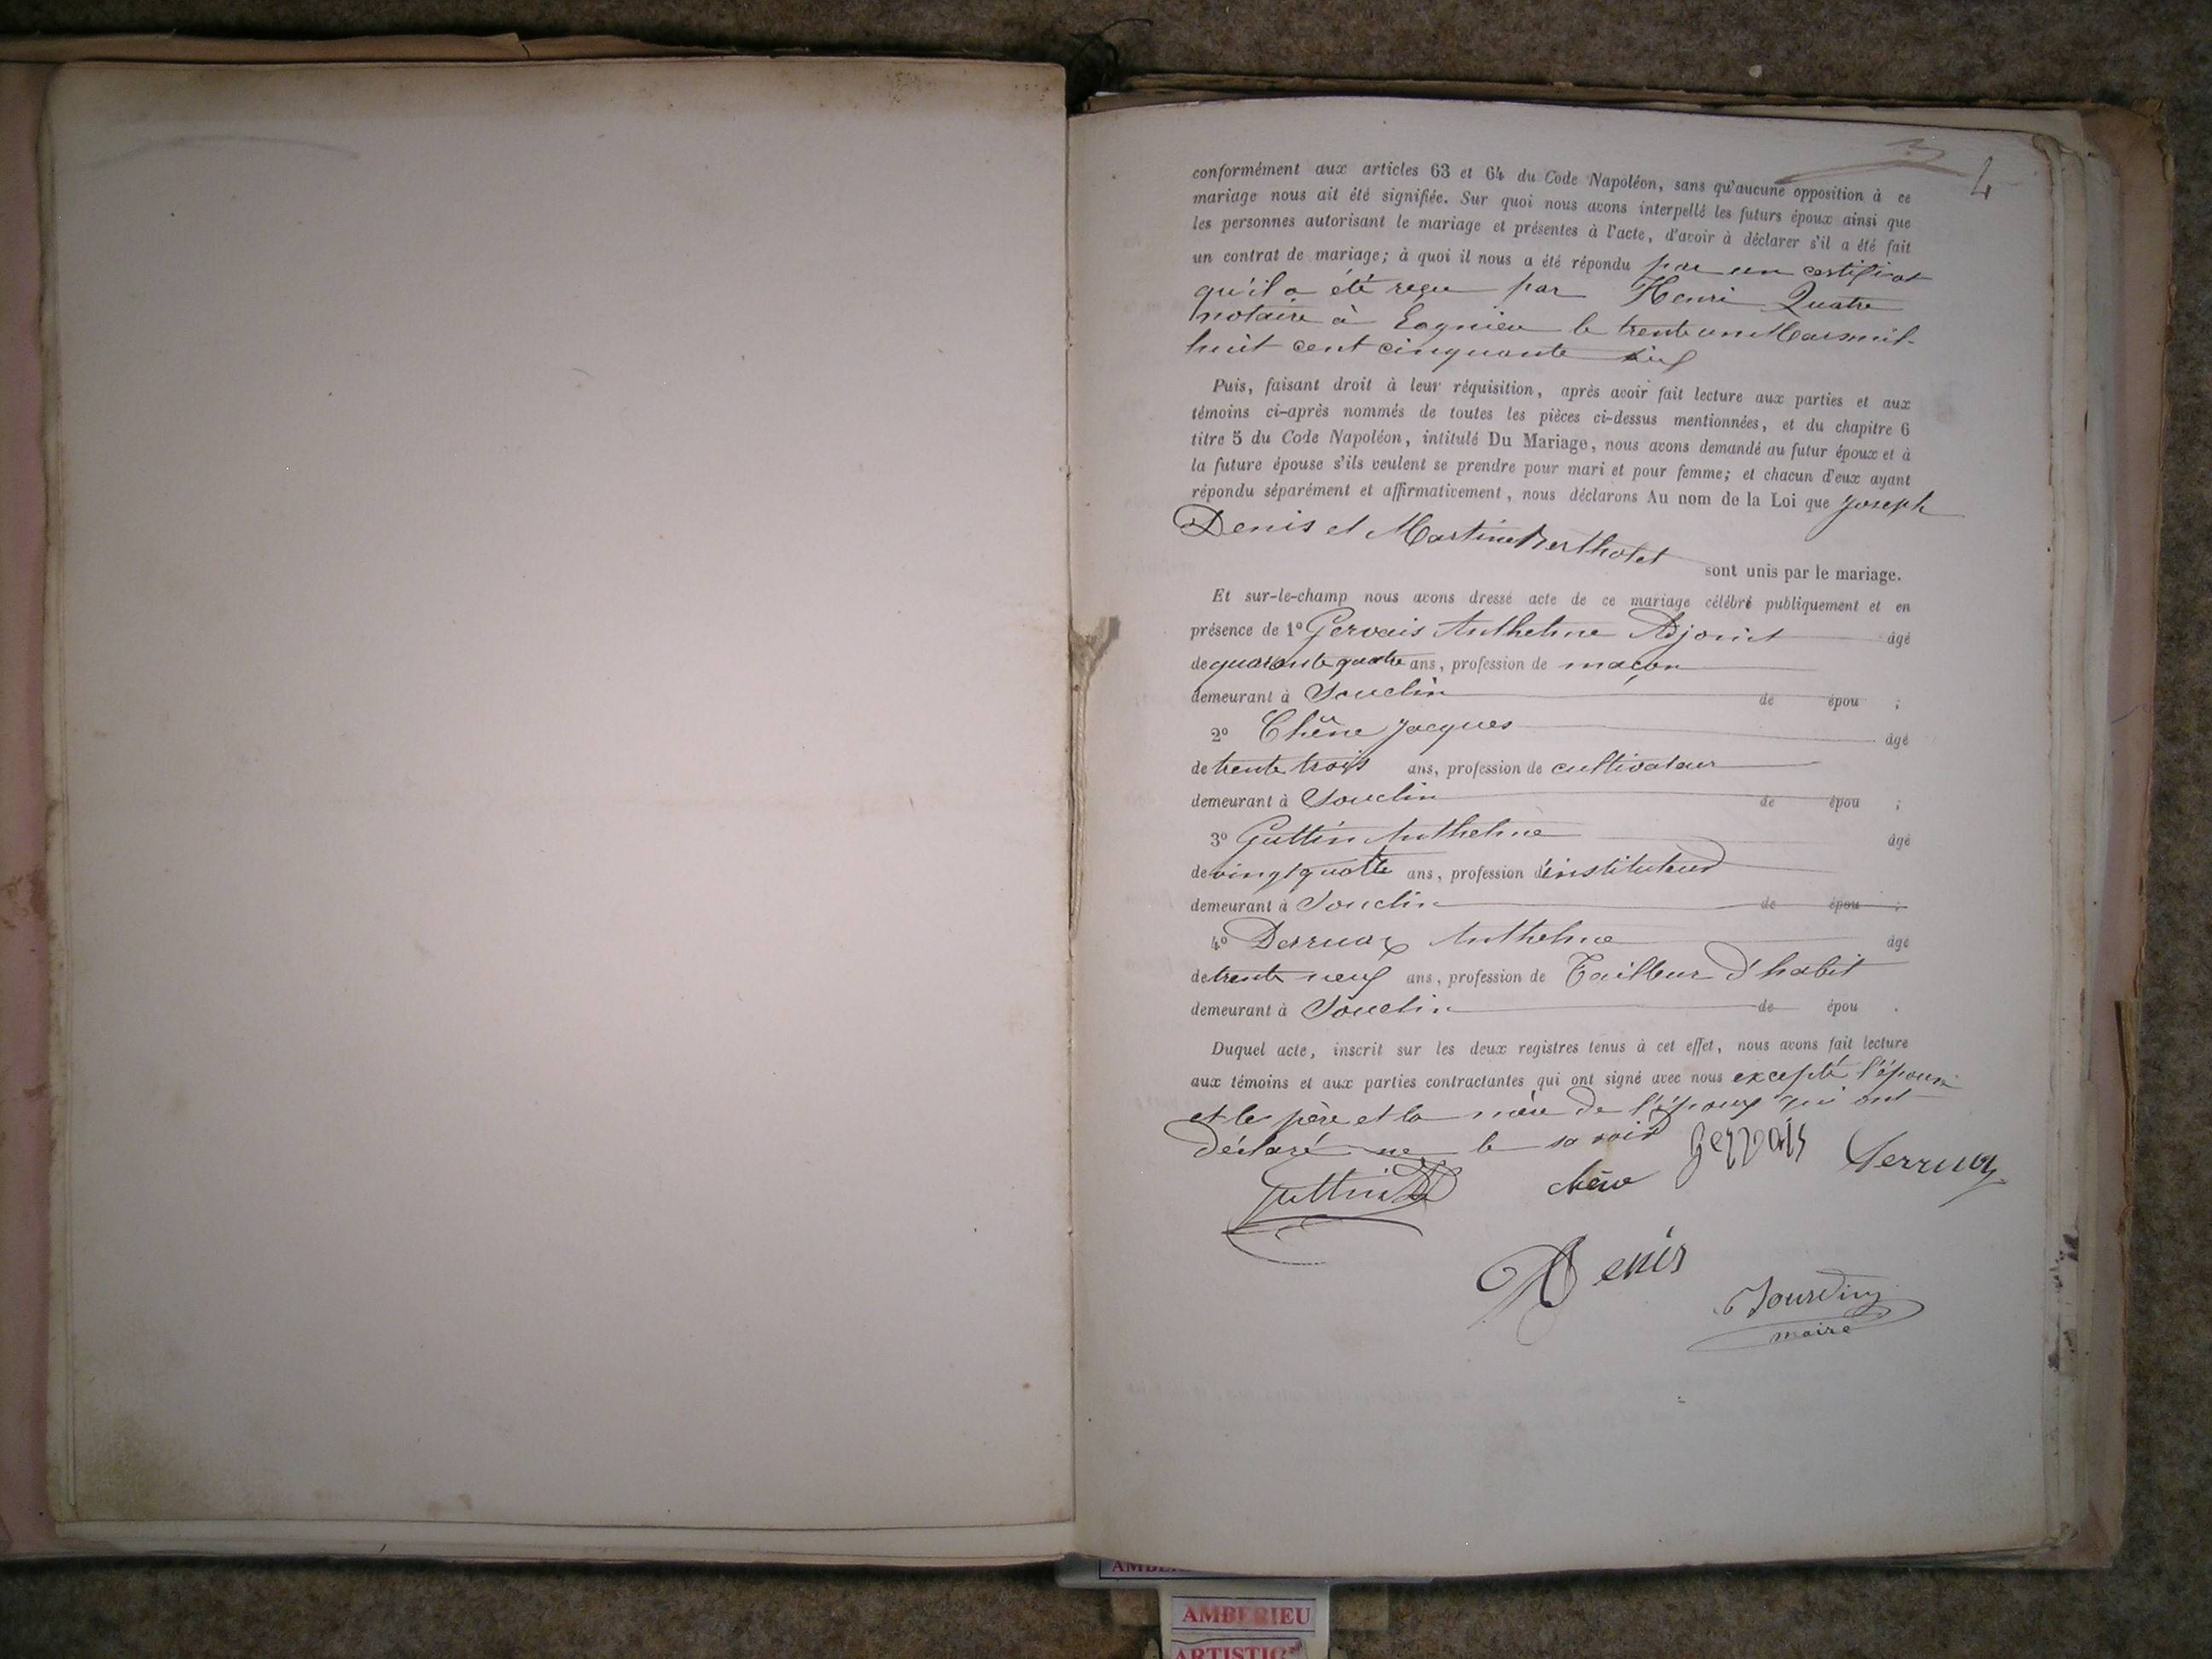 3
4
conformément aux articles 63 et 64 du Code Napoléon, sans qu'aucune opposition à ce
mariage nous ait été signifiée. Sur quoi nous avons interpellé les futurs époux ainsi que
les personnes autorisant le mariage et présentes à l'acte, d'avoir à déclarer s'il a été fait
un contrat de mariage; à quoi il nous a été répondu par un certificat
qu'il a été reçu par Henri Quatre
notaire à Lagnieu le trente un Mars mil
huit cent cinquante
Puis, faisant droit à leur réquisition, après avoir fait lecture aux parties et aux
témoins ci-après nommés de toutes les pièces ci-dessus mentionnées, et du chapitre 6
titre 5 du Code Napoléon, intitulé Du Mariage, nous avons demandé au futur époux et à
la future épouse s'ils veulent se prendre pour mari et pour femme; et chacun d'eux ayant
répondu séparément et affirmativement, nous déclarons Au nom de la Loi que Joseph
Denis et Martine Bertholet
sont unis par le mariage.
Et sur-le-champ nous avons dressé acte de ce mariage célébré publiquement et en
présence de 1º Gervais Anthelme Adjoint âgé
de quarante quatre ans, profession de maçon
demeurant à Souclin de épou ;
2º Chêne Jacques âgé
de trente trois ans, profession de cultivateur
demeurant à Souclin de épou ;
3º Guttin Anthelme âgé
de vingt quatre ans, profession d'instituteur
demeurant à Souclin de épou ;
4º Derruaz Anthelme âgé
de trente neuf ans, profession de Tailleur d'habit
demeurant à Souclin de épou .
Duquel acte, inscrit sur les deux registres tenus à cet effet, nous avons fait lecture
aux témoins et aux parties contractantes qui ont signé avec nous excepté l'épouse
et le père et la mère de l'époux qui ont
déclaré ne le savoir
Gervais Derruaz
Guttin chêne
Denis
Jourdin
maire
AMBERIEU
ARTISTIC